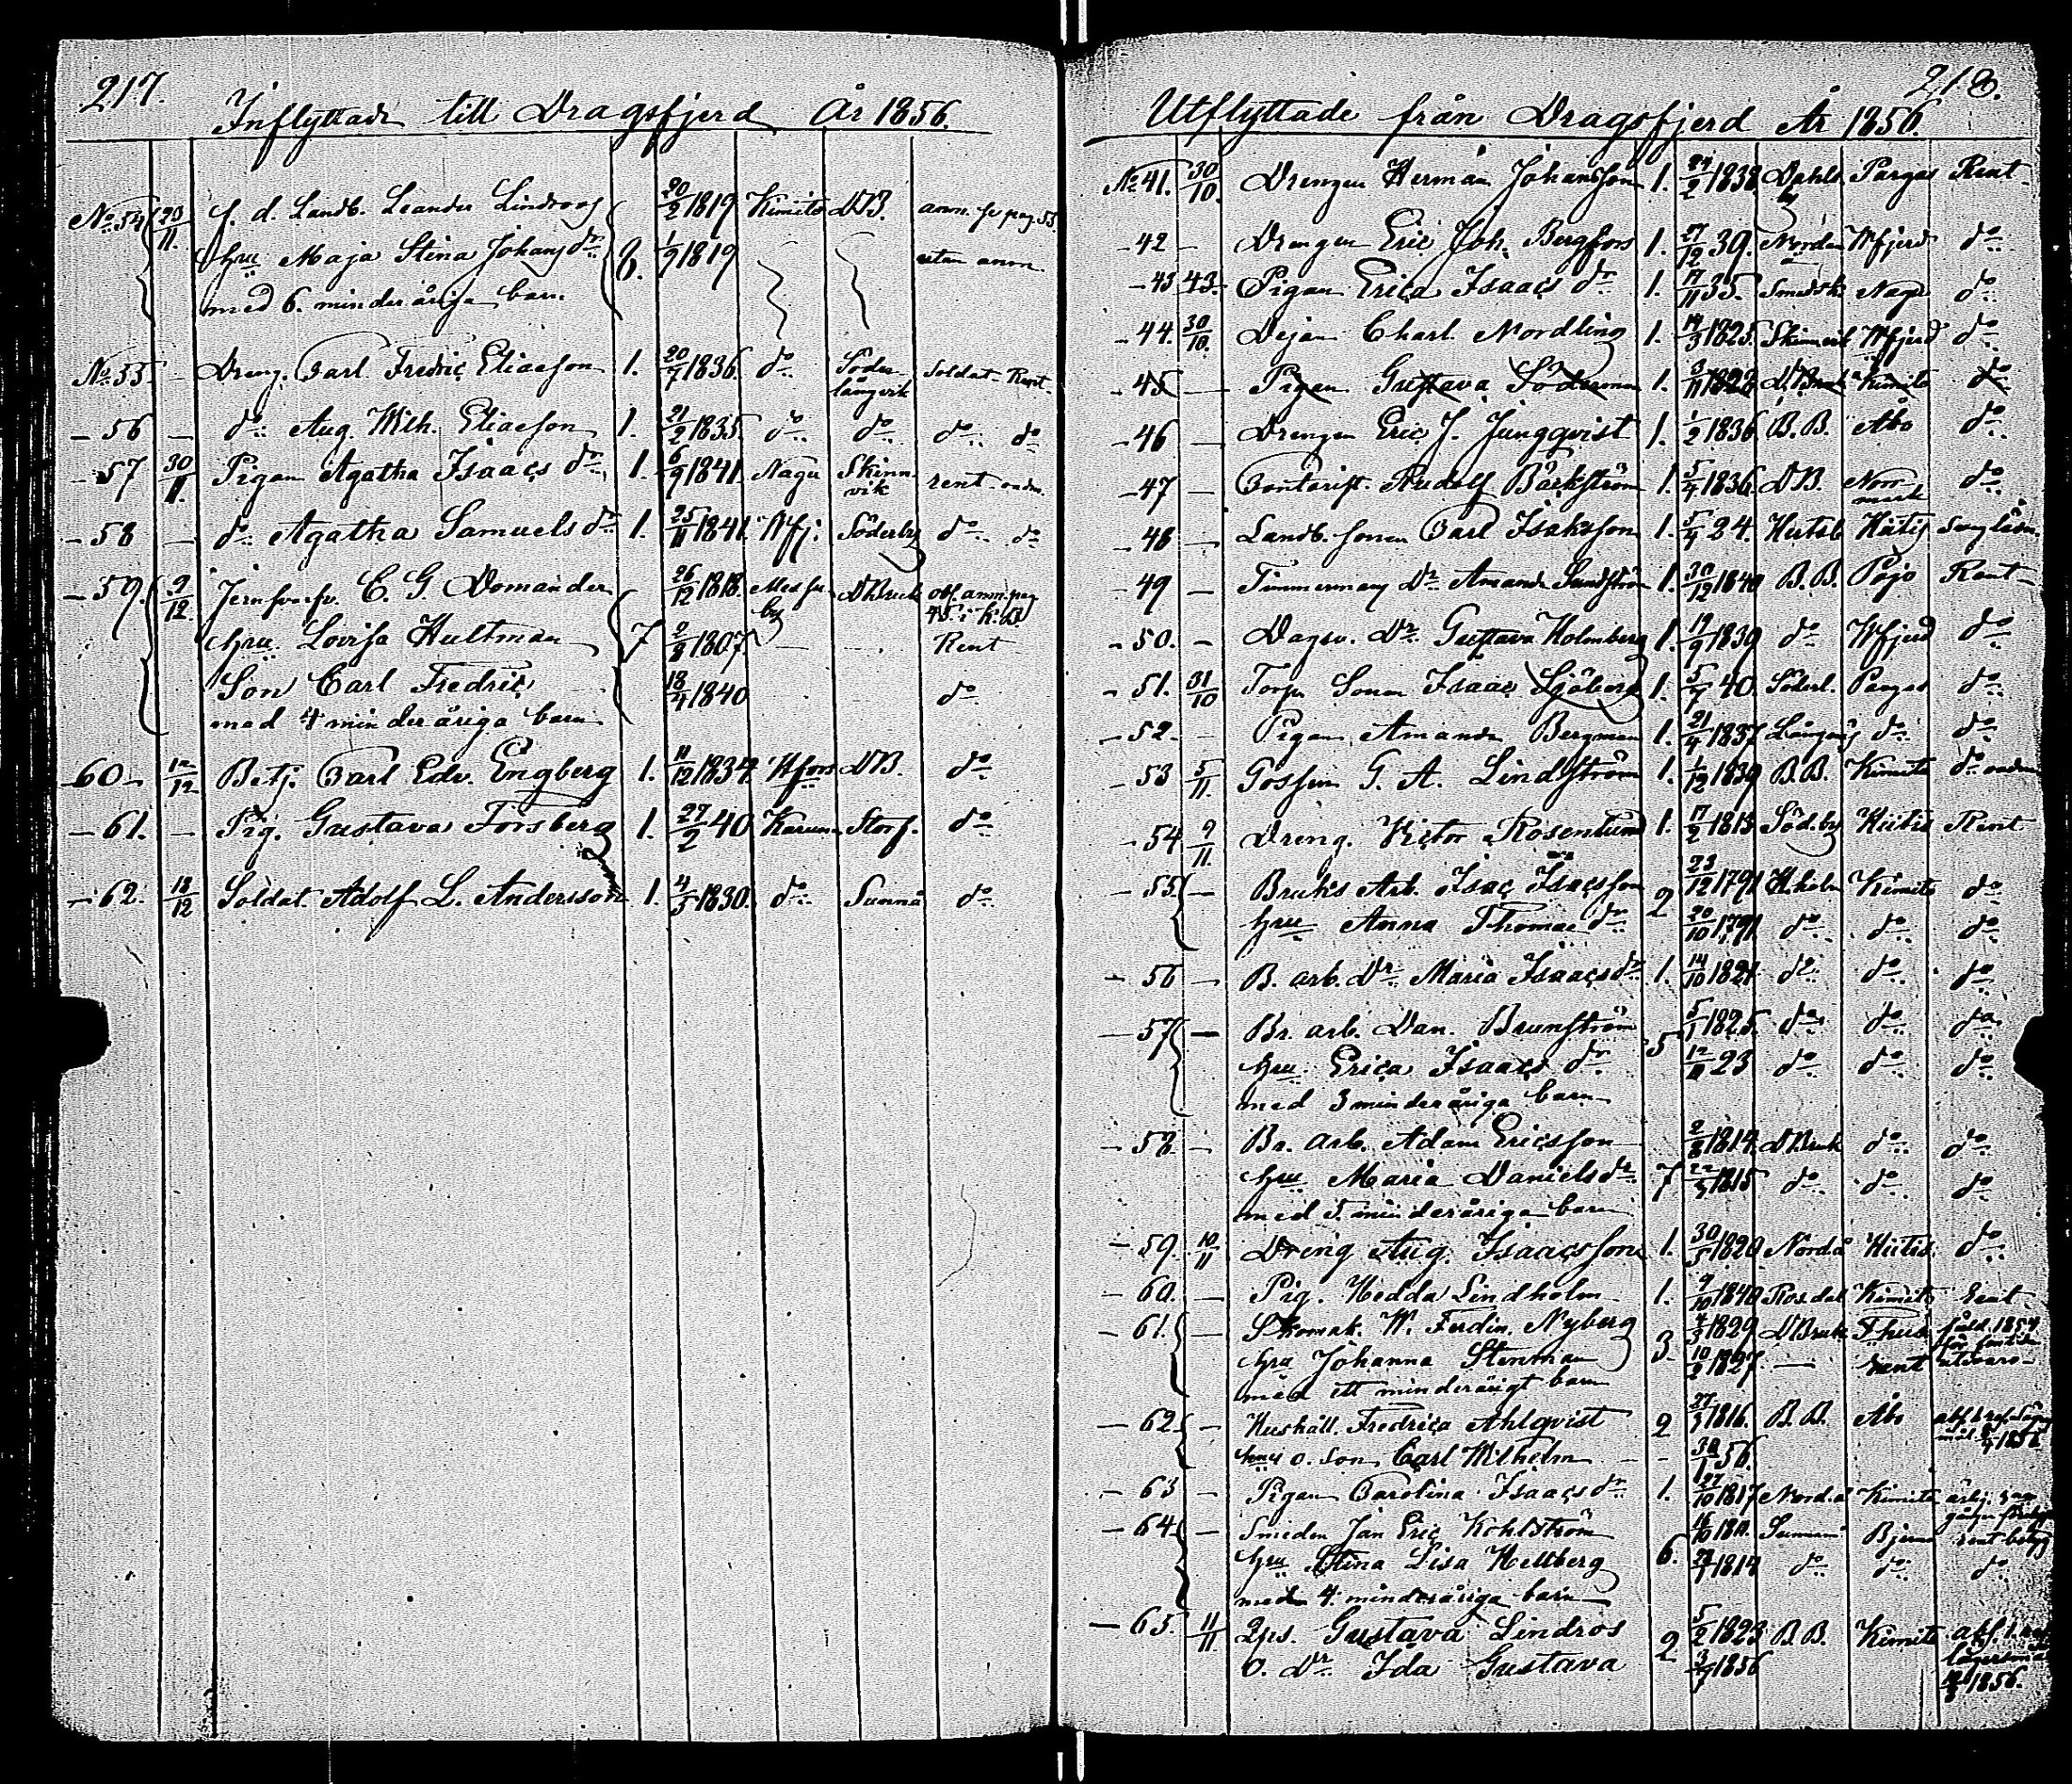 217.
Inflyttade till Dragsfjerd År 1856.
No 54 20/11. f. d. Landb. Leander Lindroos 20/2 1819 Kimito DB. anm. se pag. 53.
hu Maja Stina Johans dr 8. 1/9 1819 utan anm.
med 6. minderåriga barn.
No 55 - Dreng. Carl Fredric Eliaeson 1. 20/7 1836. do Söderlångvik Soldat Rent.
- 56 - do Aug. Wilh. Eliaeson 1. 21/2 1835. do do do do
- 57 30/11. Pigan Agatha Isaacs dr 1. 6/9 1841. Nagu Skinnvik rent
- 58 - do Agatha Samuels dr 1. 25/11 1841. Wfj: Söderby do do
- 59. 9/12. C. G. Domander 26/12 1818. DBruk
hu Lovisa Hultman 7 2/8 1807. - - Rent
Son Carl Fredric 18/4 1840 do
med 4 minderåriga barn
- 60 - 12/12 Betj. Carl Edv. Engberg 1. 11/12 1834. Hfors DB. do
- 61. - Pig. Gustava Forsberg 1. 27/2 40 Karuna Storf. do
- 62. 18/12 Soldat Adolf L. Andersson 1. 4/5 1830. do Sunnå do
218.
Utflyttade från Dragsfjerd År 1856.
No 41. 30/10. Drengen Herman Johansson 1. 24/2 1838. Dahlsby Pargas Rent
- 42 - Drengen Eric Joh. Bergfors 1. 27/12 39. Nordan Wfjerd do
- 43 43. Pigan Erica Isaacs dr 1. 17/11 35. Nagu do
- 44. 30/10. Dejan Charl. Nordling 1. 14/3 1825. Skinnvik Wfjerd do
- 45 - Pigan Gustava Söderman 1. 3/11 1828 D. Bruk Kimito do
- 46 - Drengen Eric J. Jungqvist 1. 1/2 1836. B. B. Åbo do
- 47 - Contorist. Rudolf Bäckström 1. 5/4 1836. DB. Norrmark do
- 48 - Landb. sonen Carl Isaksson 1. 5/4 24. Hitis
- 49 - Timmermans dr Amanda Sundström 1. 30/12 1840 B. B. Pojo Rent
- 50. - Dagsv. Dr Gustava Holmberg 1. 19/9 1839 do Wfjerd do
- 51. 31/10 Torp. Sonen Isaac Sjöberg 1. 5/7 40. Söderl. Pargas do
- 52. - Pigan Amanda Bergman 1. 21/4 1837 do do
- 53 5/11 Gossen G. A. Lindström 1. 1/12 1839 B. B. Kimito do
- 54 9/11. Dreng. Victor Rosenlund 1. 17/2 1813. Söd.by Hitis Rent
- 55. - Bruks Arb. Isac Isacsson 2 23/12 1791 H.holm Kimito do
hu Anna Thomae dr 20/10 1791 do do do
- 56 - B. arb. Dr Maria Isaacs dr 1. 14/10 1821. do do do
- 57 - Br. arb. Dan. Brunström 5 5/1 1825. do do do
hu Erica Isaacs dr 12/11 23 do do do
med 3 minderåriga barn
- 58 - Br. arb. Adam Ericsson 2/8 1814. DBruk do do
hu Maria Daniels dr 7 22/5 1815 do do do
med 5. minderåriga barn
- 59. 10/11 Dreng Aug. Isaacsson 1. 30/5 1820 Nordå Hitis do
- 60. - Pig. Hedda Lindholm 1. 9/10 1840 Rosdal Kimito Rent
- 61. - Skomak. W. Ferdin. Nyberg 3. 4/3 1829 DBruk
hu Johanna Stenman 10/2 1827 - rent
med ett minderårigt barn
- 62 - Hushåll. Fredrica Ahlqvist 2 27/3 1816. B. B. Åbo
o. son Carl Wilhelm - - 30/1 56.
- 63 - Pigan Carolina Isaacs dr 1. 27/10 1817 Nordå Kimito
- 64 - Smeden Jan Eric Kohlström 16/10 1811. Sunnanå Bjerno
hu Stina Lisa Hellberg 6. 1814 do do do
med 4. minderåriga barn
- 65. 11/11 Qps. Gustava Lindros 2 5/2 1823 B. B. Kimito
o. dr Ida Gustava 3/7 1856 1856.